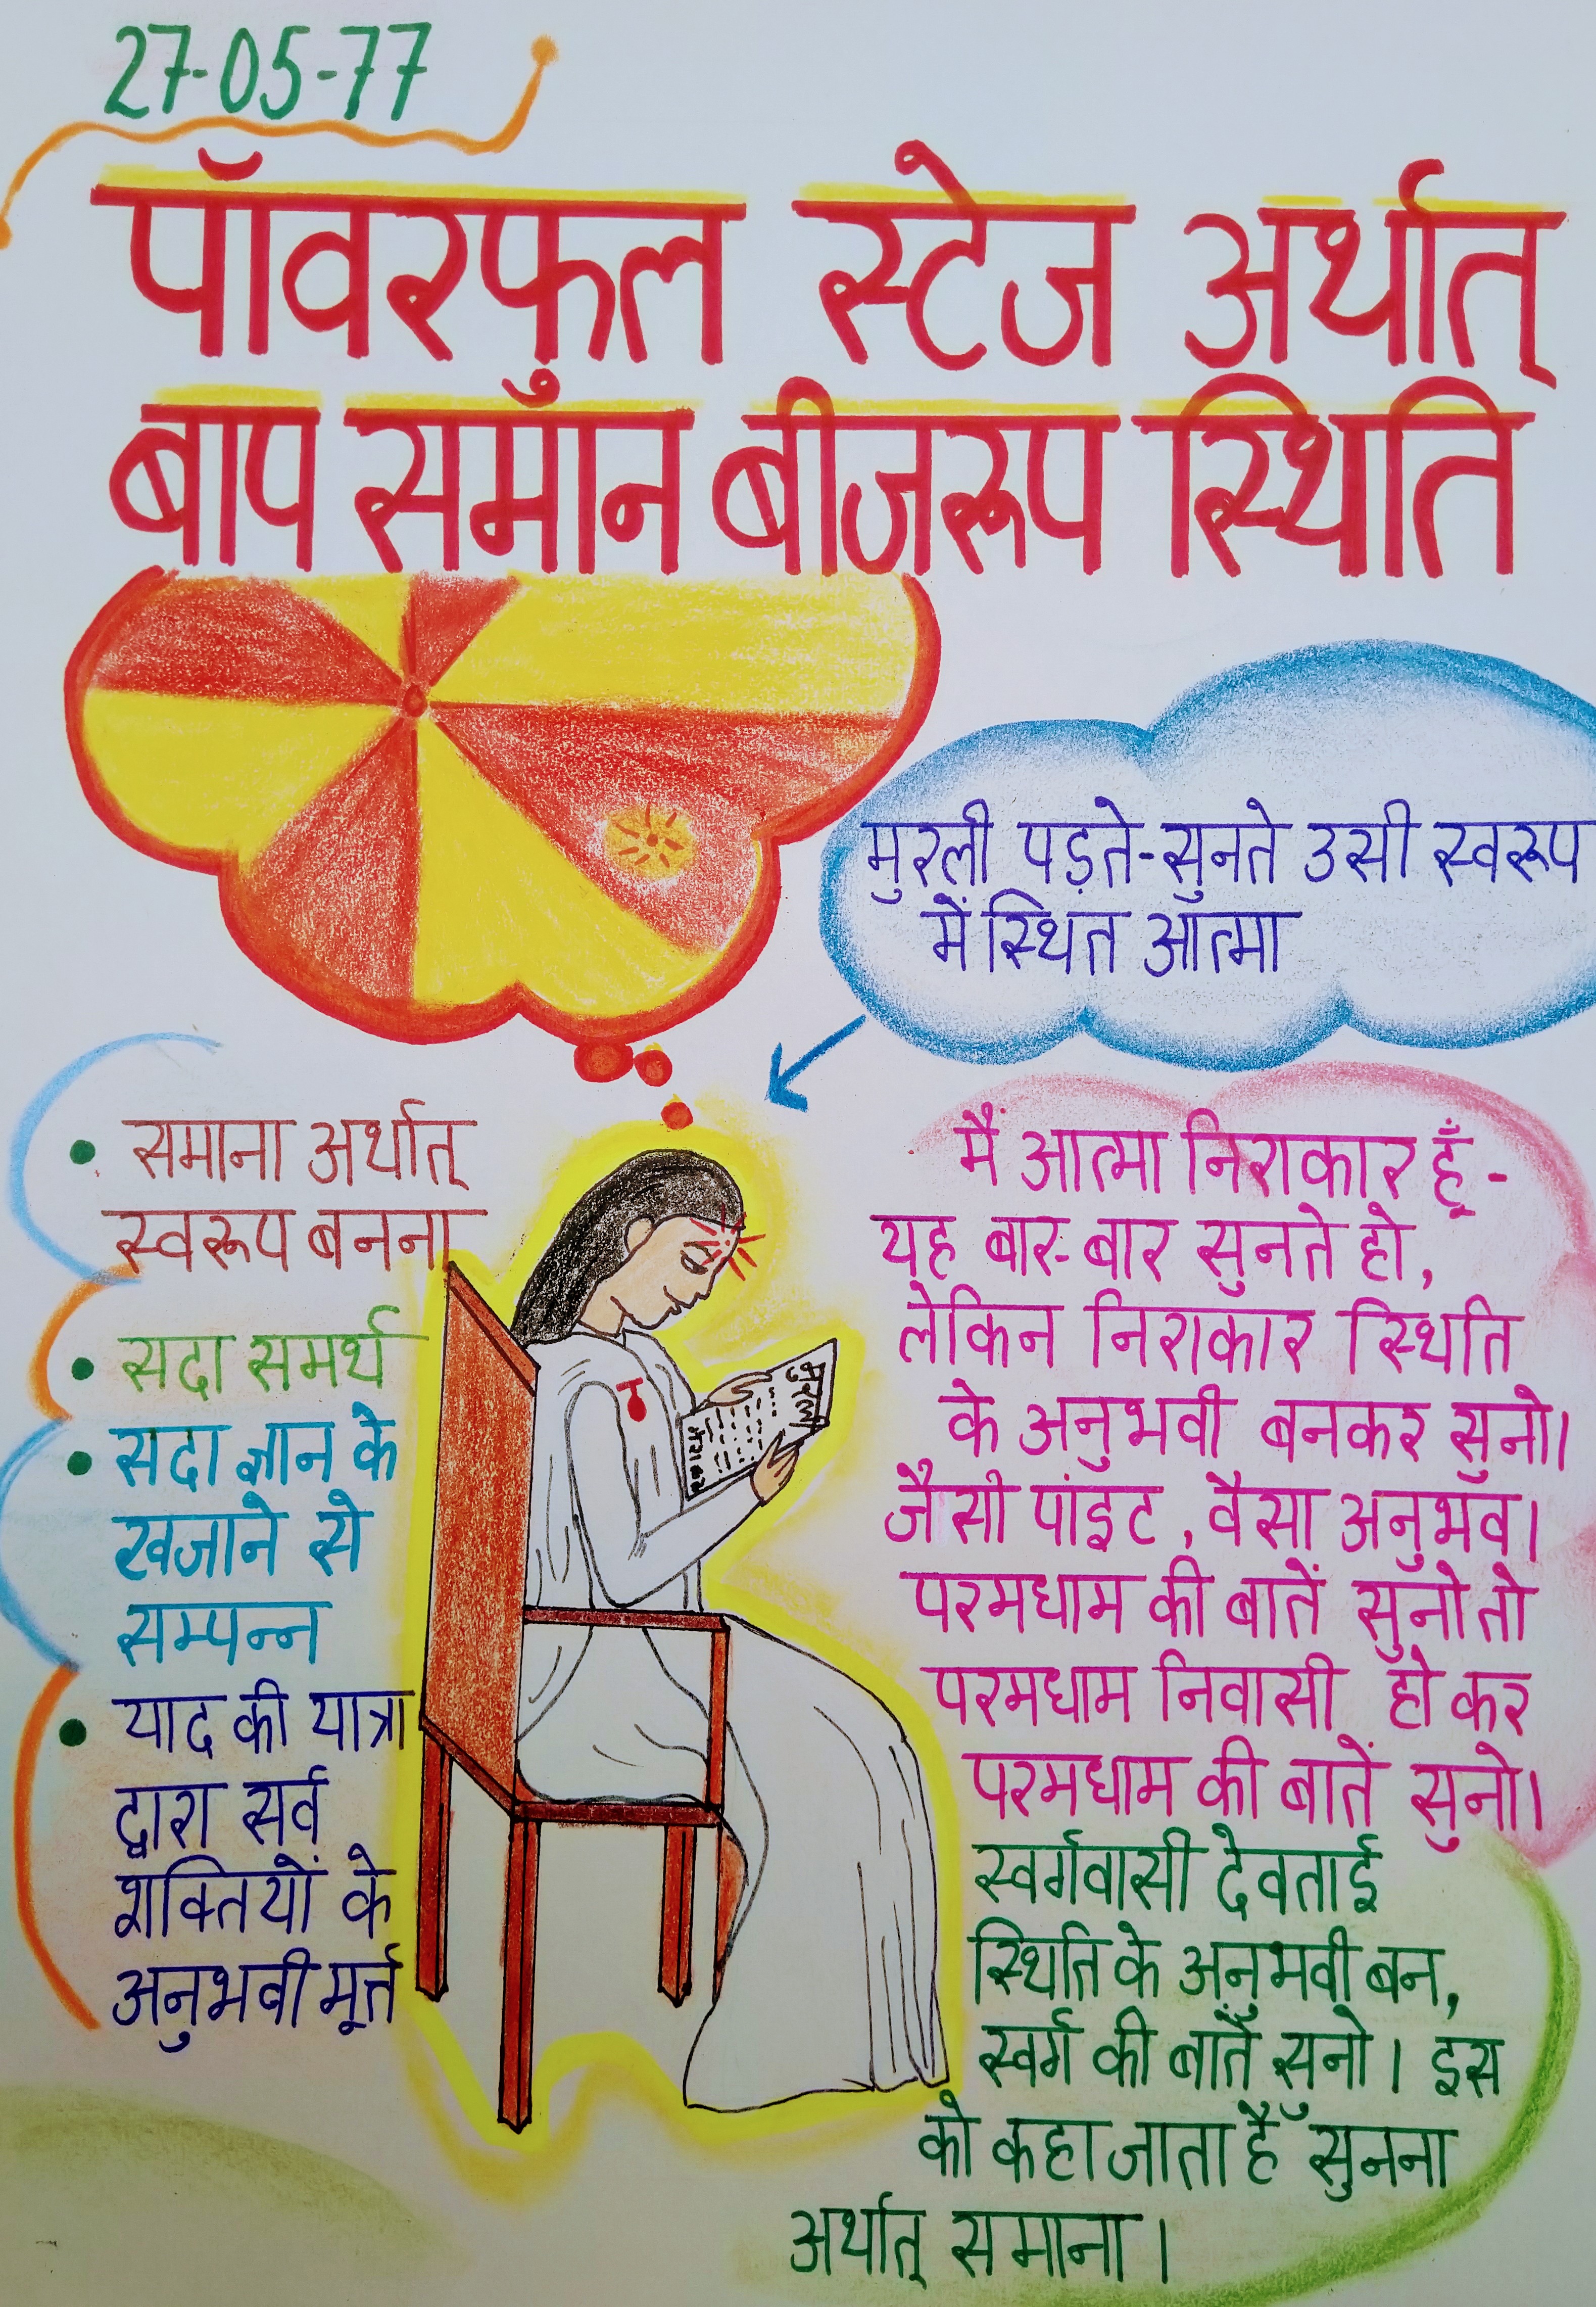 27-05-77
पॉवरफुल स्टेज अर्थात्
बाप समान बीजरूप स्थिति
मुरली पड़ते-सुनते उसी स्वरूप
में स्थित आत्मा
• समाना अर्थात्
स्वरूप बनना
• सदा समर्थ
• सदा ज्ञान के
खजाने से
सम्पन्न
• याद की यात्रा
द्वारा सर्व
शक्तियों के
अनुभवी मूर्त
मुरली
मैं आत्मा निराकार हूँ -
यह बार-बार सुनते हो,
लेकिन निराकार स्थिति
के अनुभवी बनकर सुनो।
जैसी पांइट, वैसा अनुभव।
परमधाम की बातें सुनो तो
परमधाम निवासी हो कर
परमधाम की बातें सुनो।
स्वर्गवासी देवताई
स्थिति के अनुभवी बन,
स्वर्ग की बातें सुनो। इस
को कहा जाता है सुनना
अर्थात् समाना।